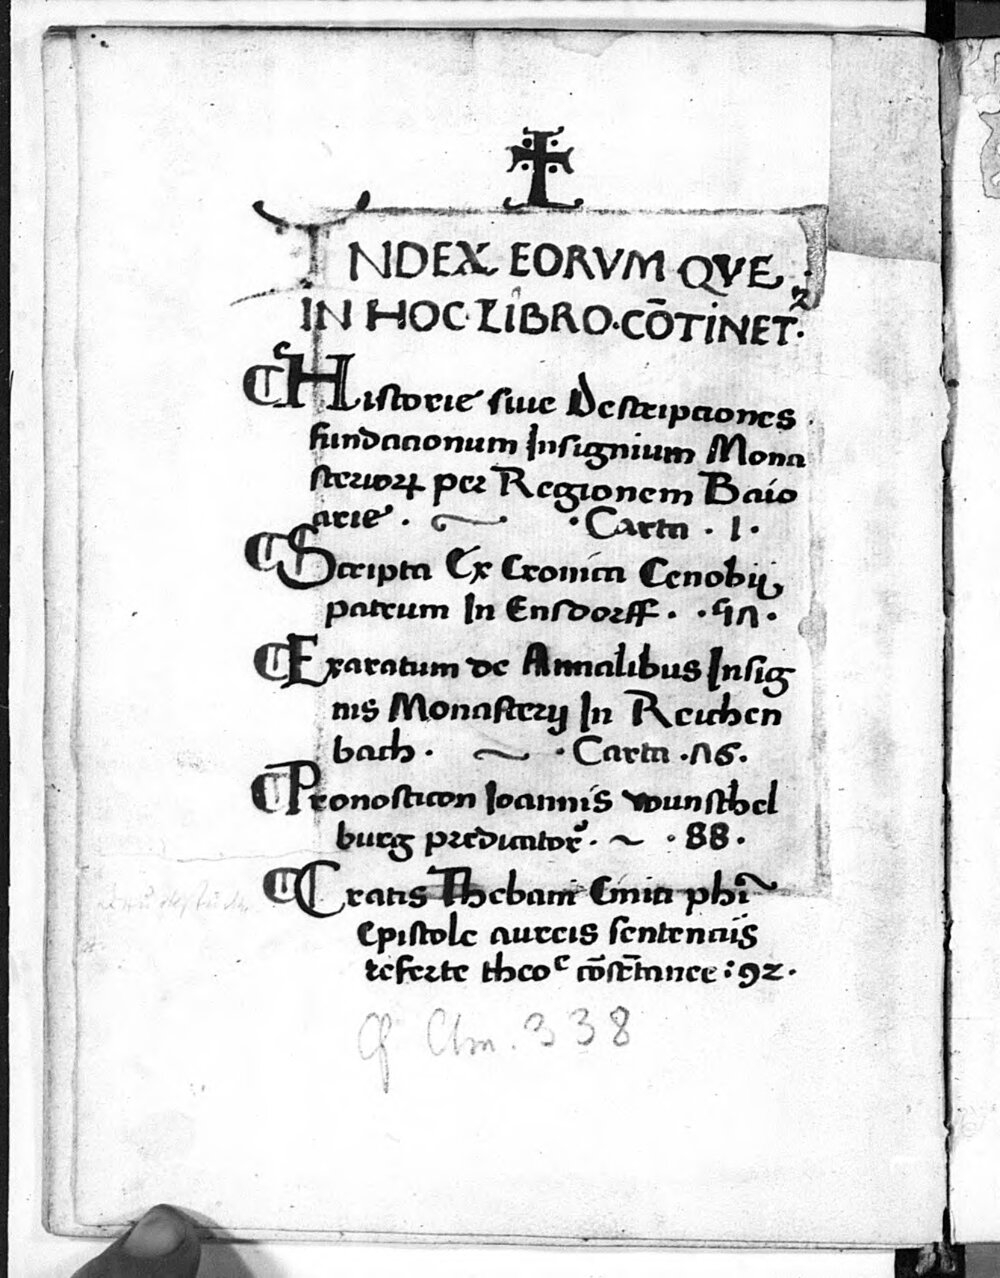 INDEX EORVM QVE
IN HOC LIBRO CŌTINET᷑
Historie siue Descriptiones
fundacionum Insignium Mona
sterioꝝ per Regionem Baio
arie · Carta · 1 ·
Scripta Ex Cronica Cenobij
patrum In Ensdorff ·
Exaratum de Annalibus Insig
nis Monasterij In Reichen
bach · Carta · Λ6 ·
Pronosticon Ioannis wunschel
burg predicator᷑ · 88 ·
Cratis Thebani Cinici phī
Epistole aureis sentencijs
referte theoᶜ cōstātinee : 92 ·
Cf. Clm. 338